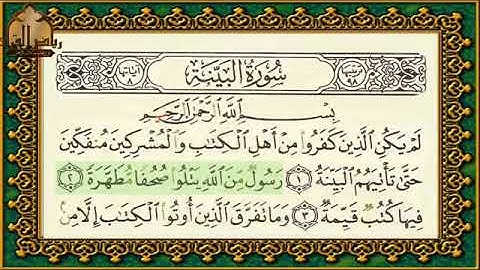 سُورَةُ الْبَيِّنَةِ
ترتيبها ٩٨
آياتها ٨
بِسْمِ ٱللَّهِ ٱلرَّحْمَٰنِ ٱلرَّحِيمِ
لَمْ يَكُنِ ٱلَّذِينَ كَفَرُوا۟ مِنْ أَهْلِ ٱلْكِتَٰبِ وَٱلْمُشْرِكِينَ مُنفَكِّينَ
حَتَّىٰ تَأْتِيَهُمُ ٱلْبَيِّنَةُ ١ رَسُولٌ مِّنَ ٱللَّهِ يَتْلُوا۟ صُحُفًا مُّطَهَّرَةً ٢
فِيهَا كُتُبٌ قَيِّمَةٌ ٣ وَمَا تَفَرَّقَ ٱلَّذِينَ أُوتُوا۟ ٱلْكِتَٰبَ إِلَّا مِنۢ